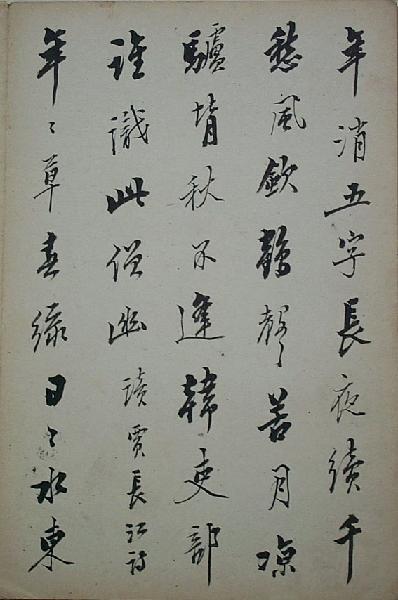 年消五字長夜續千
愁風鶴聲苦月涼
驢背秋不逢韓吏部
誰識此僧幽 讀賈長江詩
年〻草春綠日〻水東